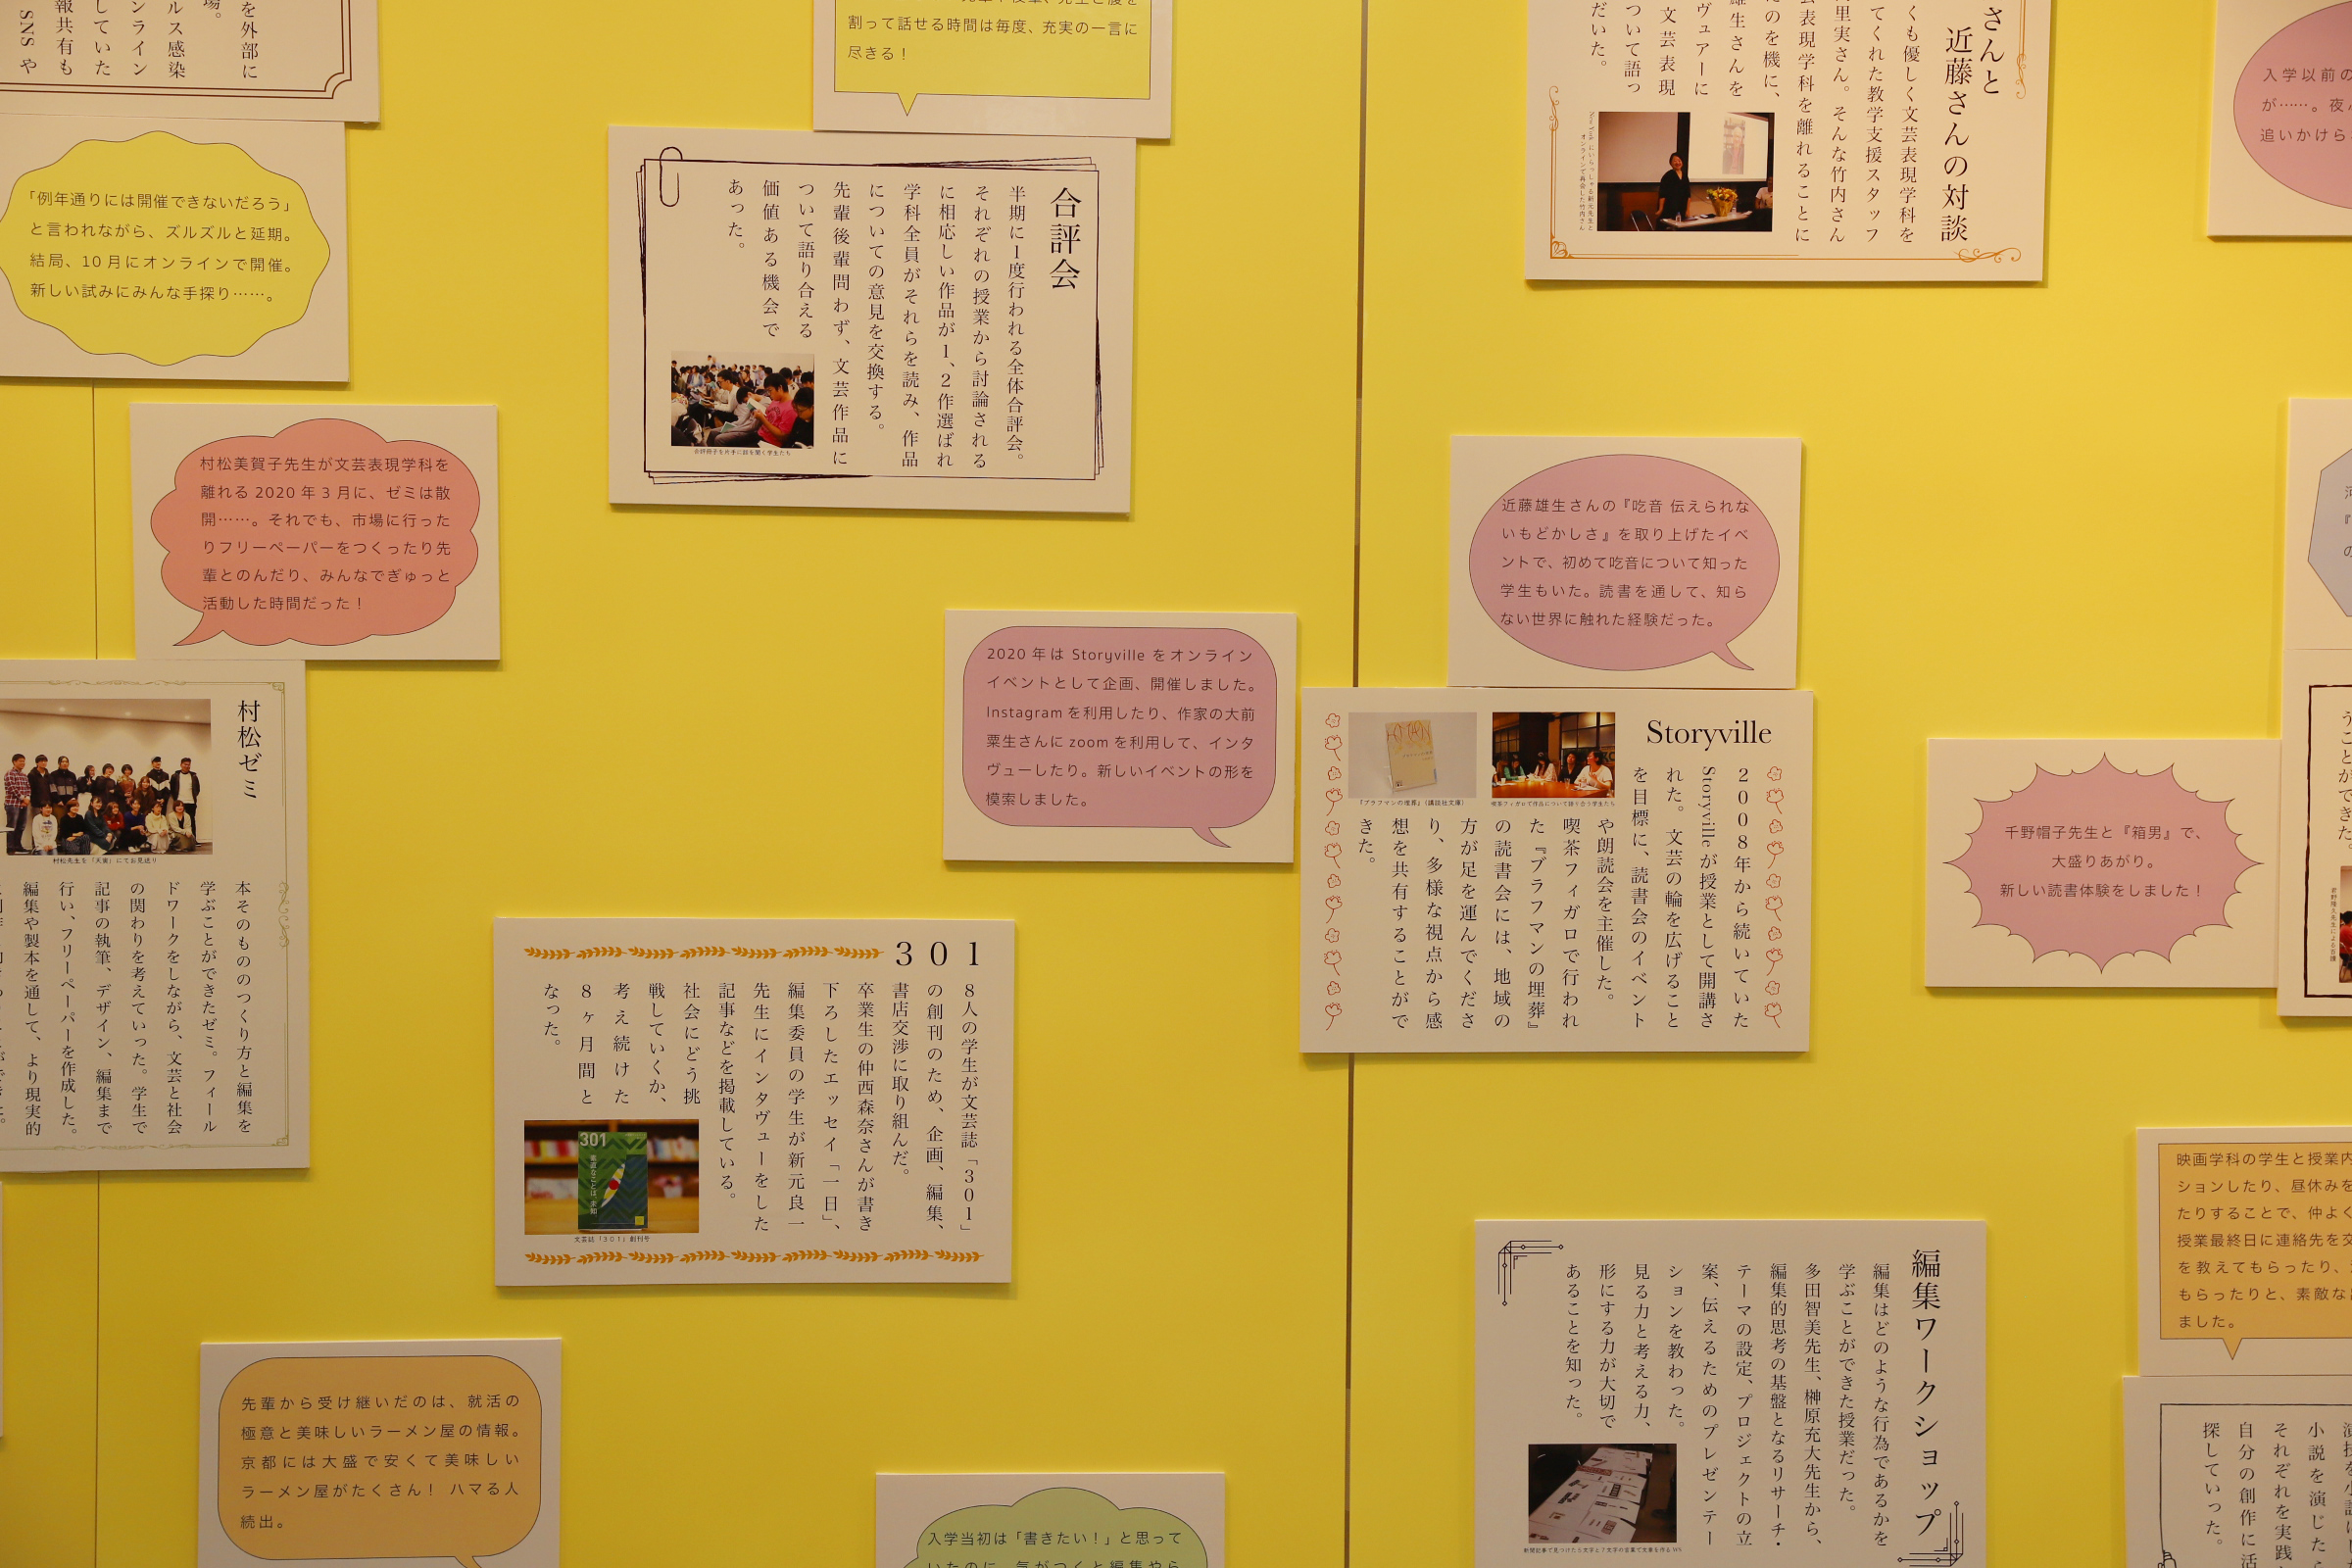 を外部に
ルス感染
ンライン
していた
報共有も
SNS や
「例年通りには開催できないだろう」
と言われながら、ズルズルと延期。
結局、10 月にオンラインで開催。
新しい試みにみんな手探り……。
村松美賀子先生が文芸表現学科を
離れる 2020 年 3 月に、ゼミは散
開……。それでも、市場に行った
りフリーペーパーをつくったり先
輩とのんだり、みんなでぎゅっと
活動した時間だった！
村松ゼミ
村松先生を「天狗」にてお見送り
本そのもののつくり方と編集を
学ぶことができたゼミ。フィール
ドワークをしながら、文芸と社会
の関わりを考えていった。学生で
記事の執筆、デザイン、編集まで
行い、フリーペーパーを作成した。
編集や製本を通して、より現実的
割って話せる時間は毎度、充実の一言に
尽きる！
合評会
半期に1度行われる全体合評会。
それぞれの授業から討論される
に相応しい作品が1、2作選ばれ
学科全員がそれらを読み、作品
についての意見を交換する。
先輩後輩問わず、文芸作品に
ついて語り合える
価値ある機会で
あった。
合評冊子を片手に話を聞く学生たち
2020 年は Storyville をオンライン
イベントとして企画、開催しました。
Instagram を利用したり、作家の大前
粟生さんに zoom を利用して、インタ
ヴューしたり。新しいイベントの形を
模索しました。
301
8人の学生が文芸誌「301」
の創刊のため、企画、編集、
書店交渉に取り組んだ。
卒業生の仲西森奈さんが書き
下ろしたエッセイ「一日」、
編集委員の学生が新元良一
先生にインタヴューをした
記事などを掲載している。
社会にどう挑
戦していくか、
考え続けた
8ヶ月間と
なった。
301
文芸誌「301」創刊号
先輩から受け継いだのは、就活の
極意と美味しいラーメン屋の情報。
京都には大盛で安くて美味しい
ラーメン屋がたくさん！ ハマる人
続出。
入学当初は「書きたい！」と思って
いたのに、気がつくと編集やら
さんと
近藤さんの対談
くも優しく文芸表現学科を
てくれた教学支援スタッフ
里実さん。そんな竹内さん
芸表現学科を離れることに
たのを機に、
雄生さんを
ヴュアーに
文芸表現
ついて語っ
だいた。
New York にいらっしゃる新元先生と
オンラインで再会した竹内さん
近藤雄生さんの『吃音 伝えられな
いもどかしさ』を取り上げたイベ
ントで、初めて吃音について知った
学生もいた。読書を通して、知ら
ない世界に触れた経験だった。
Storyville
2008年から続いていた
Storyville が授業として開講さ
れた。文芸の輪を広げること
を目標に、読書会のイベント
や朗読会を主催した。
喫茶フィガロで行われ
た『ブラフマンの埋葬』
の読書会には、地域の
方が足を運んでくださ
り、多様な視点から感
想を共有することがで
きた。
『ブラフマンの埋葬』（講談社文庫）
喫茶フィガロで作品について語り合う学生たち
千野帽子先生と『箱男』で、
大盛りあがり。
新しい読書体験をしました！
編集ワークショップ
編集はどのような行為であるかを
学ぶことができた授業だった。
多田智美先生、榊原充大先生から、
編集的思考の基盤となるリサーチ・
テーマの設定、プロジェクトの立
案、伝えるためのプレゼンテー
ションを教わった。
見る力と考える力、
形にする力が大切で
あることを知った。
入学以前の
が……。夜
追いかけら
うことができた。
映画学科の学生と授業内
ションしたり、昼休みを
たりすることで、仲よく
授業最終日に連絡先を交
を教えてもらったり、
もらったりと、素敵な
ました。
小説を演じた
それぞれを実践
自分の創作に活
探していった。